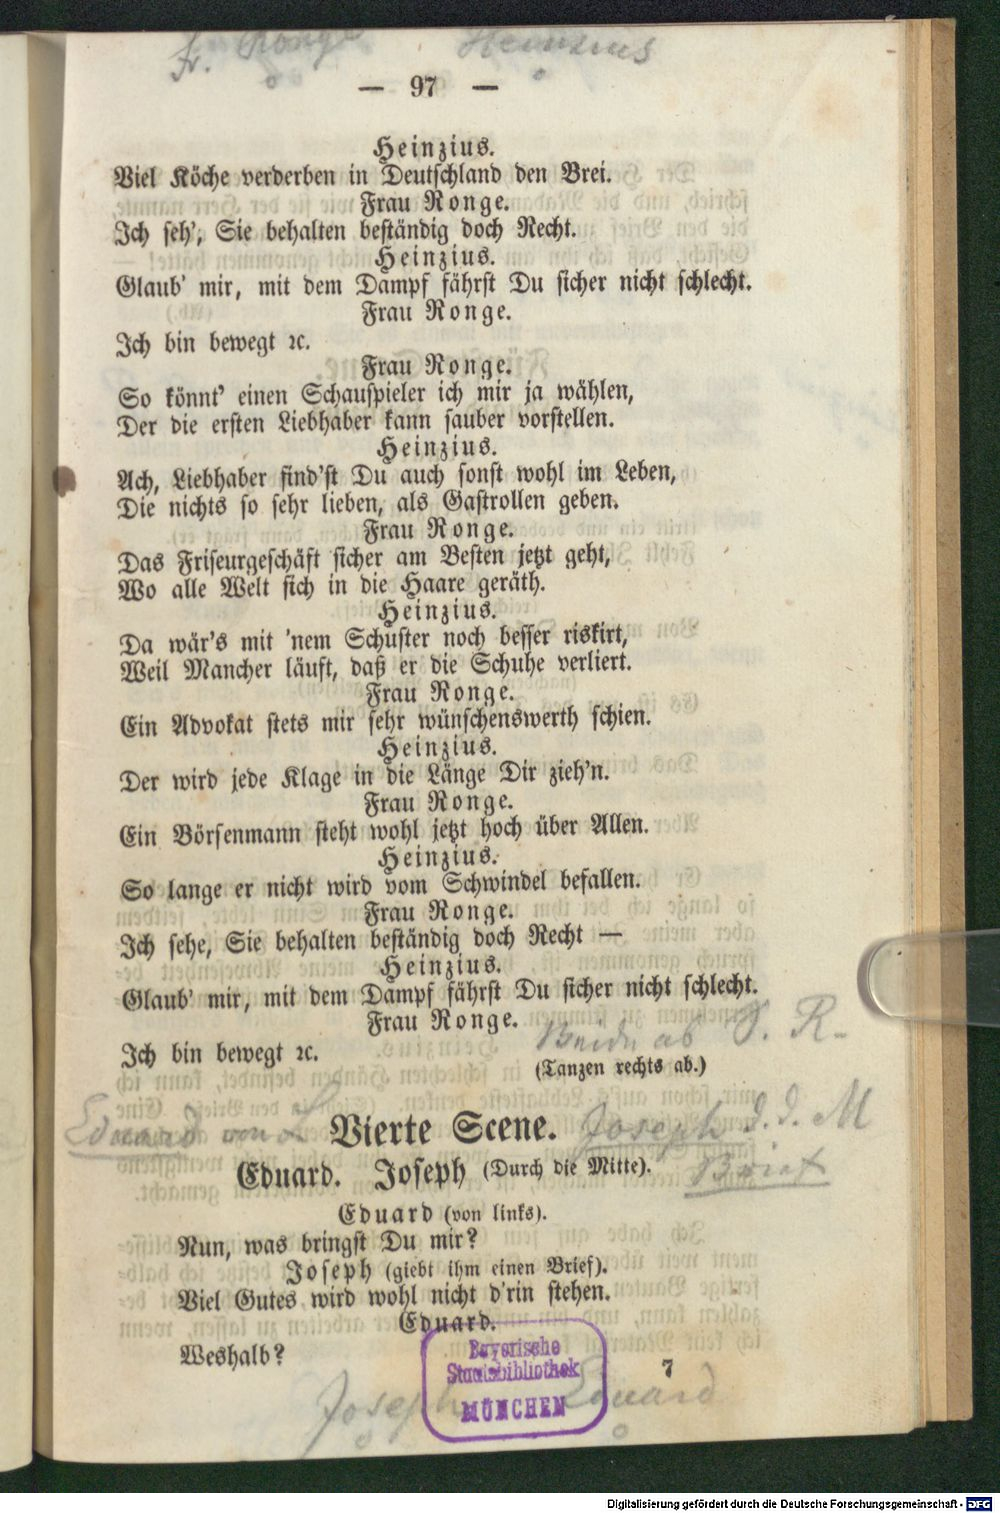 Fr. Ronge Heinzius
— 97 —
Heinzius.
Viel Köche verderben in Deutschland den Brei.
Frau Ronge.
Ich seh', Sie behalten beständig doch Recht.
Heinzius.
Glaub' mir, mit dem Dampf fährst Du sicher nicht schlecht.
Frau Ronge.
Ich bin bewegt ꝛc.
Frau Ronge.
So könnt' einen Schauspieler ich mir ja wählen,
Der die ersten Liebhaber kann sauber vorstellen.
Heinzius.
Ach, Liebhaber find'st Du auch sonst wohl im Leben,
Die nichts so sehr lieben, als Gastrollen geben.
Frau Ronge.
Das Friseurgeschäft sicher am Besten jetzt geht,
Wo alle Welt sich in die Haare geräth.
Heinzius.
Da wär's mit 'nem Schuster noch besser riskirt,
Weil Mancher läuft, daß er die Schuhe verliert.
Frau Ronge.
Ein Advokat stets mir sehr wünschenswerth schien.
Heinzius.
Der wird jede Klage in die Länge Dir zieh'n.
Frau Ronge.
Ein Börsenmann steht wohl jetzt hoch über Allen.
Heinzius.
So lange er nicht wird vom Schwindel befallen.
Frau Ronge.
Ich sehe, Sie behalten beständig doch Recht —
Heinzius.
Glaub' mir, mit dem Dampf fährst Du sicher nicht schlecht.
Frau Ronge.
Beide ab S. R.
Ich bin bewegt ꝛc.
(Tanzen rechts ab.)
Eduard von L Vierte Scene. Joseph d. d. M
Eduard. Joseph (Durch die Mitte). Brief
Eduard (von links).
Nun, was bringst Du mir?
Joseph (giebt ihm einen Brief).
Viel Gutes wird wohl nicht d'rin stehen.
Eduard.
Weshalb?
7
Bayerische
Staatsbibliothek
MÜNCHEN
Joseph Eduard
Digitalisierung gefördert durch die Deutsche Forschungsgemeinschaft - DFG